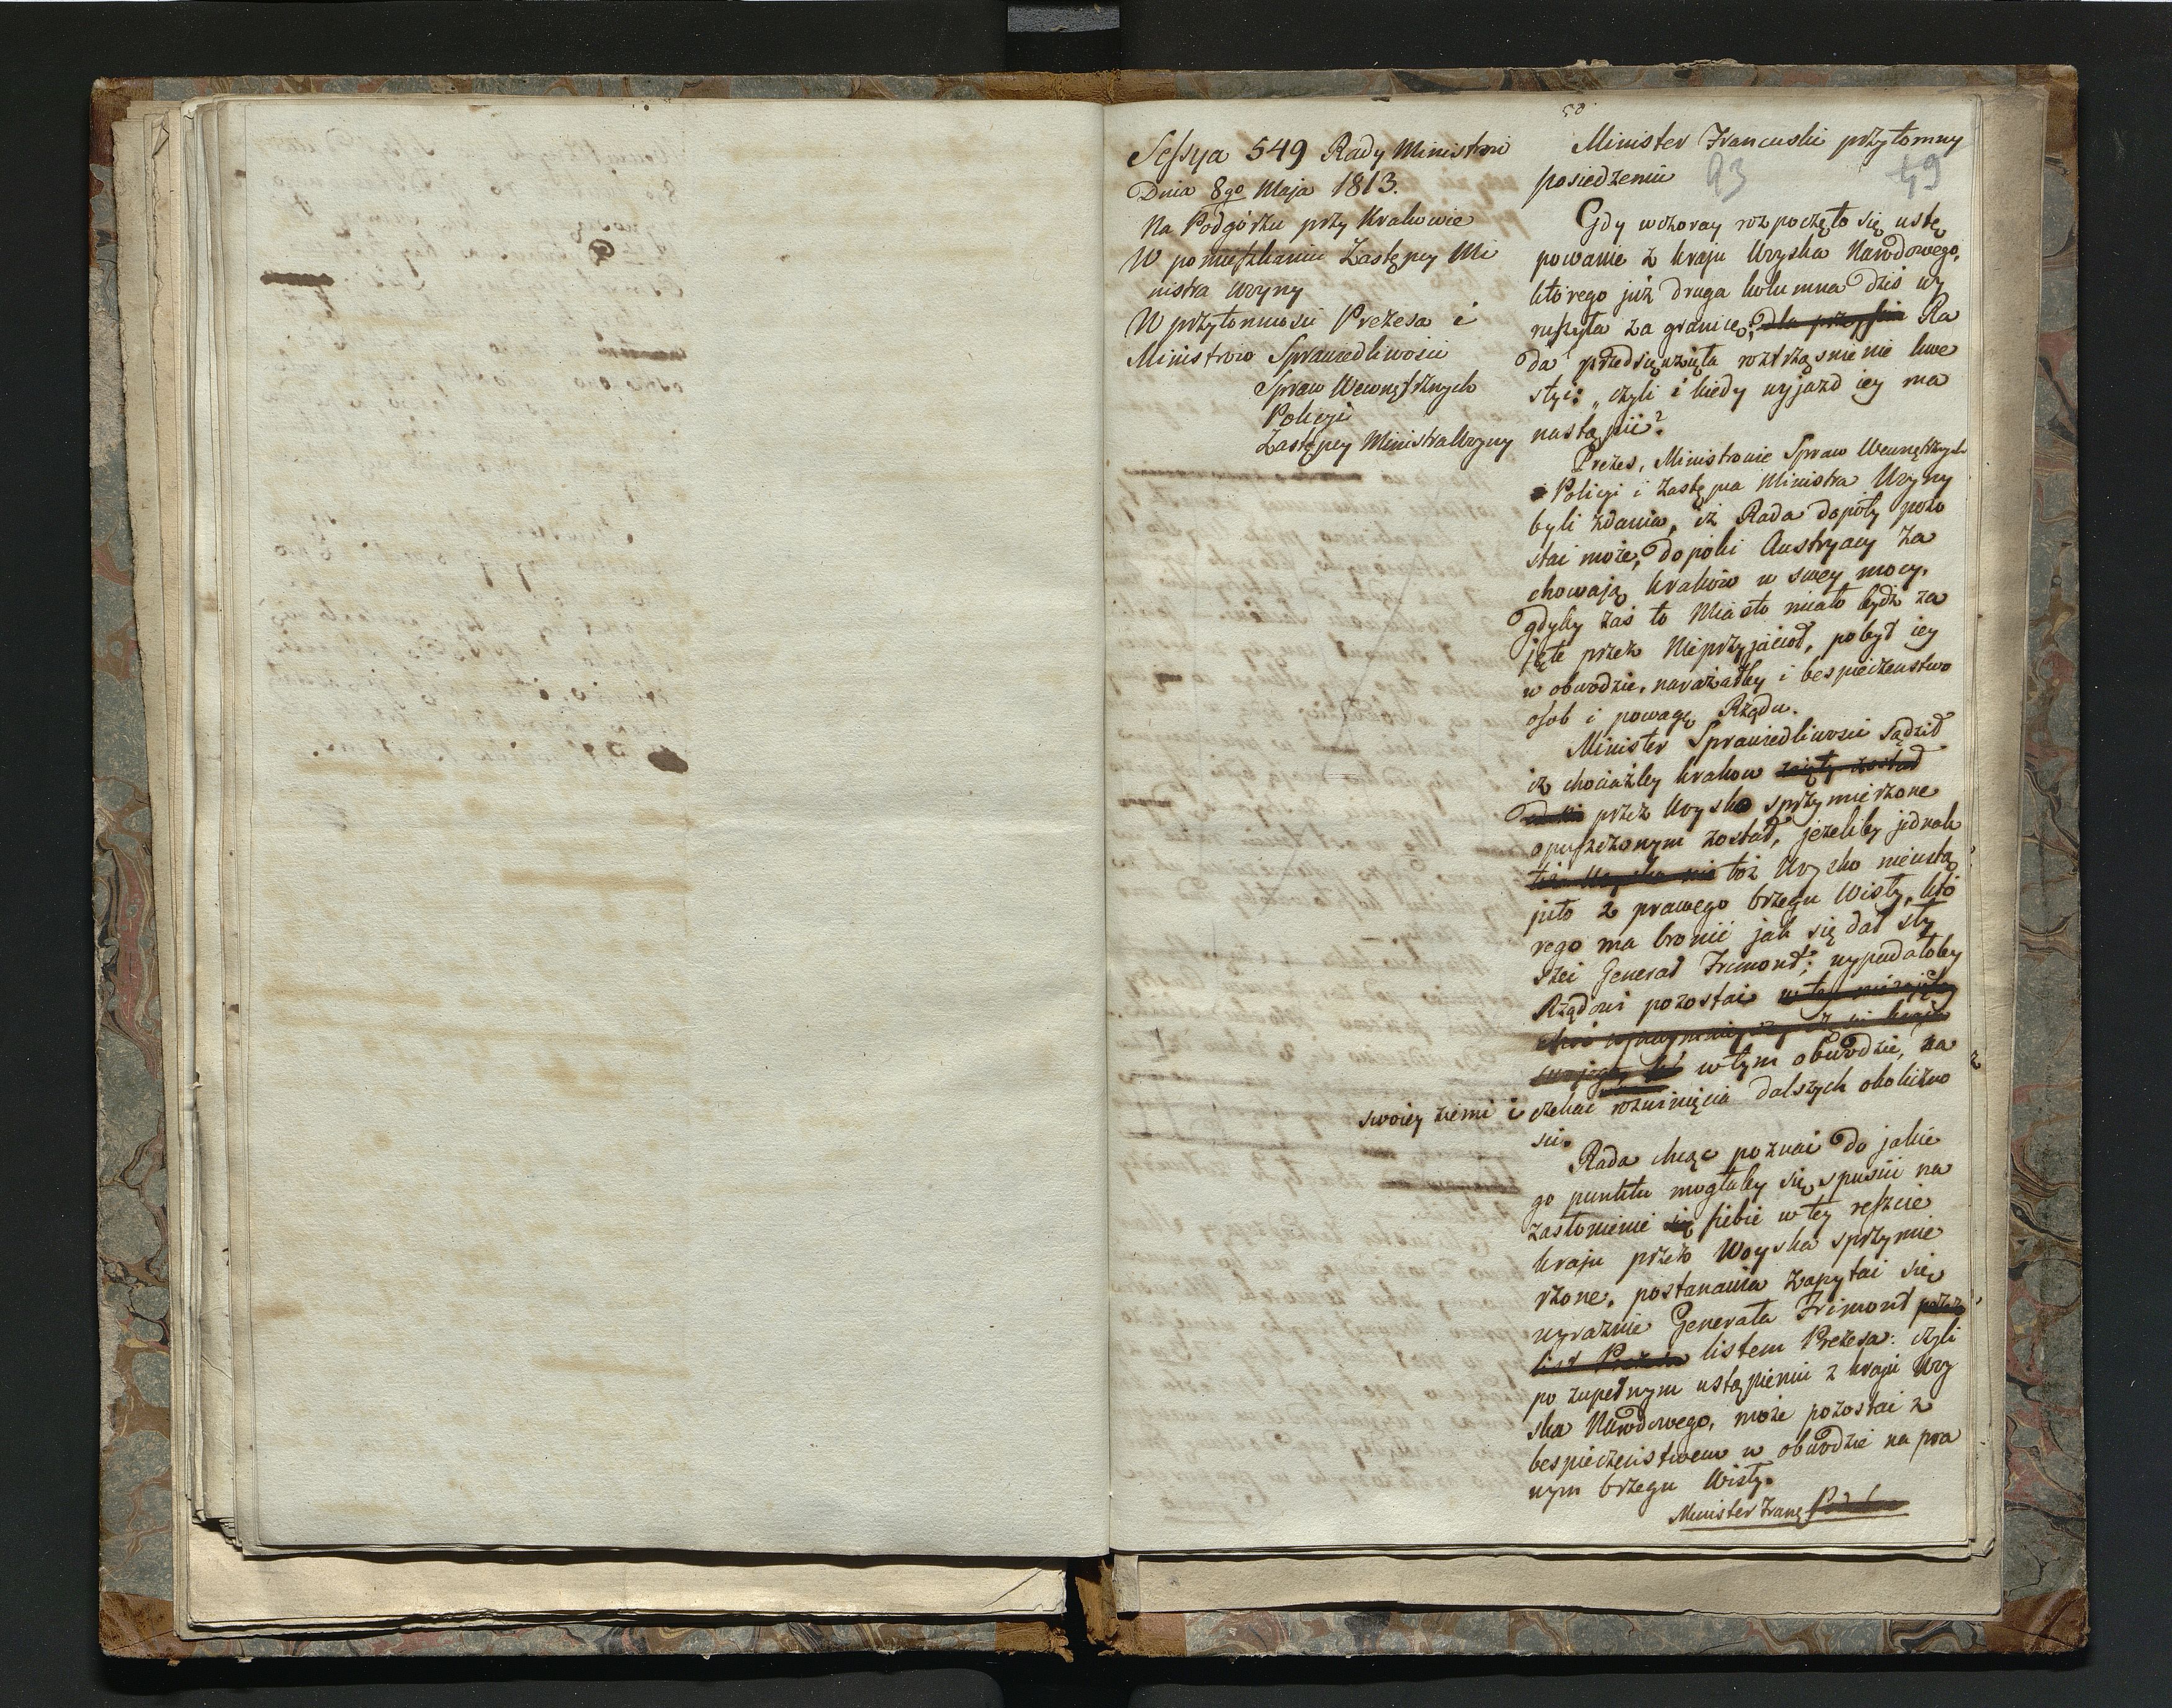 50
Sessya 549 Rady Ministrów
Dnia 8go Maja 1813.
Na Podgórzu przy Krakowie
W pomieszkaniu Zastępcy Mi
nistra Woyny
W przytomności Prezesa i
Ministrów Sprawiedliwości
Spraw Wewnętrznych
Policyi
Zastępcy Ministra Woyny
Minister Francuski przytomny
posiedzeniu
93 49
Gdy wczoray rozpoczęło się ustę
powanie z kraju Woyska Narodowego,
którego już druga kolumna dziś wy
ruszyła za granicę; Ra
da przedsięwzięła roztrząsnienie kwe
styi: „czyli i kiedy wyjazd iey ma
nastąpić?
Prezes, Ministrowie Spraw Wewnętrznych
i Policyi i Zastępca Ministra Woyny
byli zdania, iż Rada dopóty pozo
stać może, dopóki Austryacy za
chowają Kraków w swey mocy,
gdyby zaś to Miasto miało bydź za
jęte przez Nieprzyjaciół, pobyt iey
w obwodzie, narażałby i bespieczenstwo
osob i powagę Rządu.
Minister Sprawiedliwości Sądził
iż chociażby Krakow zajęty został
przez Woysko sprzymierzone
opuszczonym został, jeżeliby jednak
toż Woysko nie toż Woysko nieustą
piło z prawego brzegu Wisły, któ
rego ma bronić jak się dał sły
szeć Generał Frimont; wypadałoby
Rządowi pozostać
w tym obwodzie, na
swoiey ziemi i czekać rozwinięcia dalszych okoliczno
ści.
Rada chcąc poznać do jakie
go punktu mogłaby się spuścić na
zasłonienie się siebie w tey reszcie
kraju przez Woyska sprzymie
rzone, postanawia zapytać się
wyraźnie Generała Frimont przez
list Prezesa listem Prezesa: czyli
po zupełnym ustąpieniu z kraju Woy
ska Narodowego, może pozostać z
bespieczeństwem w obwodzie na pra
wym brzegu Wisły.
Minister Franc